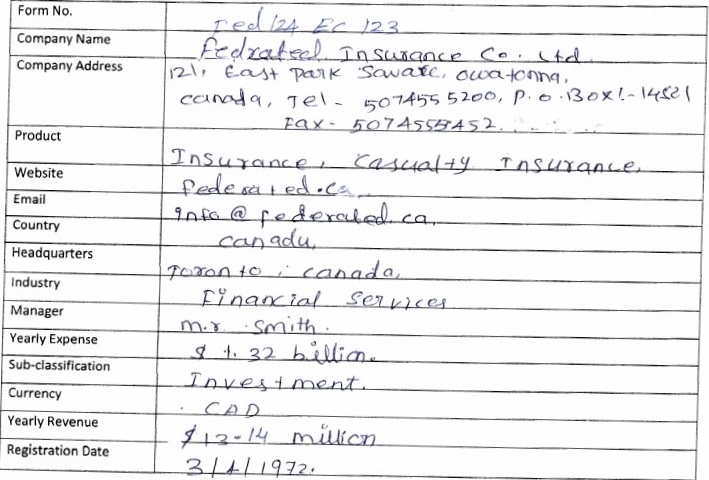 Form No. Fed 124 EC 123
Company Name Fedrated Insurance Co. Ltd.
Company Address 121, East Park Sawate, Owatonna,
Canada, Tel - 5074555200, P.O.Box!-14521
Fax - 5074555452
Product Insurance, Casualty Insurance,
Website federated.ca
Email info@federated.ca,
Country Canada,
Headquarters Toronto, Canada,
Industry Financial Services
Manager m.r. Smith.
Yearly Expense $ 1.32 billion.
Sub-classification Investment.
Currency CAD
Yearly Revenue $13-14 million
Registration Date 3/4/1972.